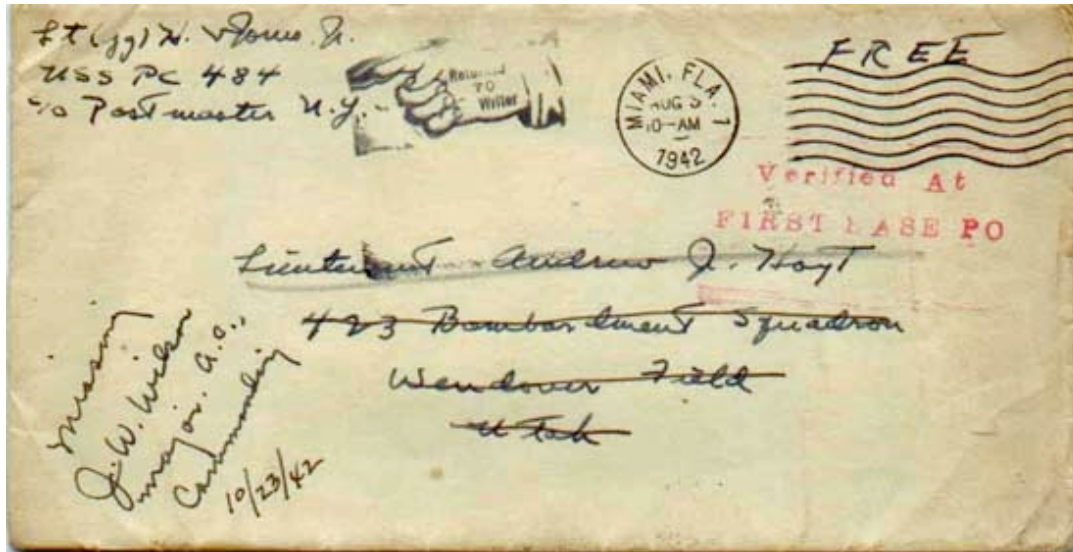 Lt (jg) H. Jr.
USS PC 484
c/o Postmaster N.Y.
Returned
TO
Writer
MIAMI, FLA. 1
AUG
10-AM
1942
FREE
Verified At
FIRST BASE PO
Lieutenant Andrew J. Hoyt
423 Bombardment Squadron
Wendover Field
Utah
Missing
J. W. Wilson
major. a.c.,
Commanding
10/23/42